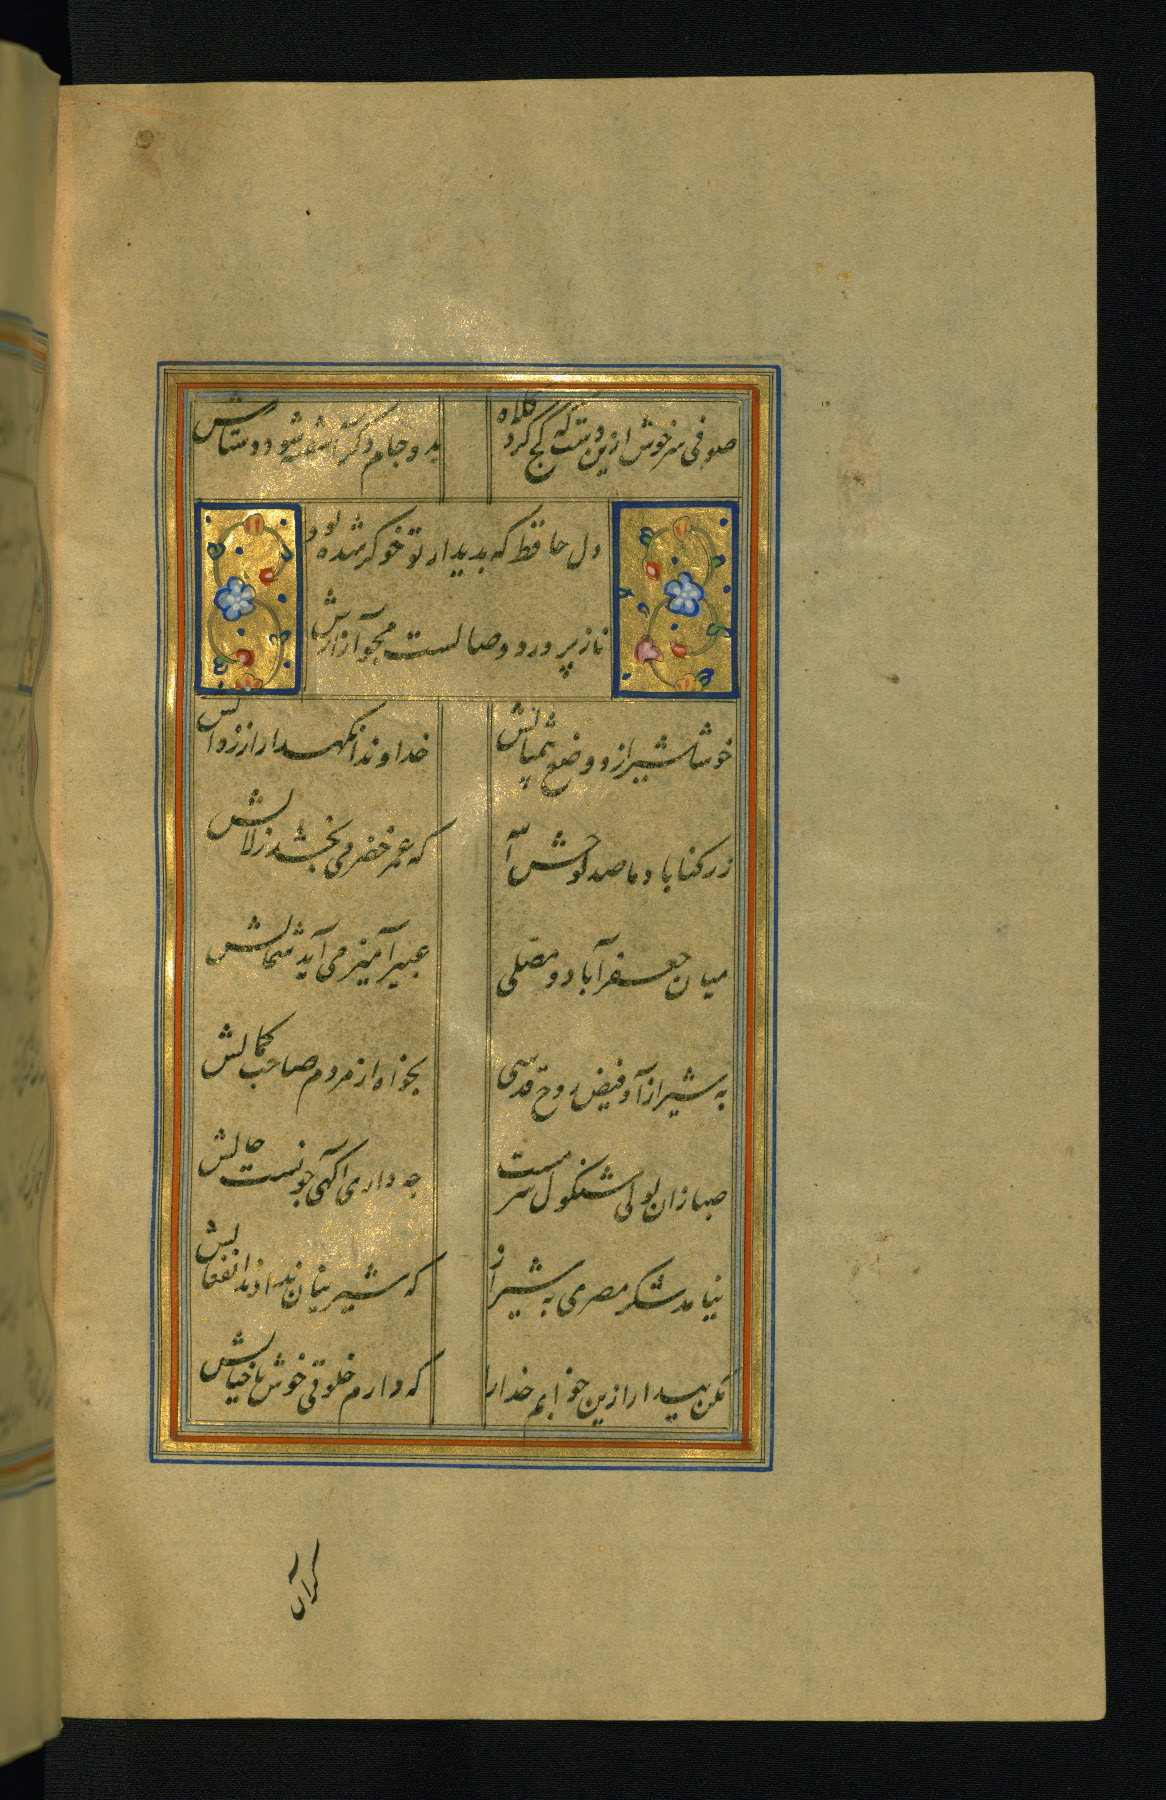 صوفی سرخوش ازین دست که کج کرد کلاه
بدو جام دکر آشفته شود دستارش
دل حافظ که بدیدار تو خوکر شده بود
ناز پرورد وصالست مجو آزارش
خوشا شیراز و وضع بیمثالش
خداوندا نکهدار از زوالش
ز رکناباد ما صد لوحش الله
که عمر خضر می بخشد زلالش
میان جعفرآباد و مصلی
عبیرآمیز می آید شمالش
به شیراز آ و فیض روح قدسی
بخواه از مردم صاحب کمالش
صبا زان لولی شنکول سرمست
چه داری آکهی چونست حالش
نیامد شکر مصری به شیراز
که شیرینان ندادند انفعالش
مکن بیدار ازین خوابم خدارا
که دارم خلوتی خوش با خیالش
کر آن